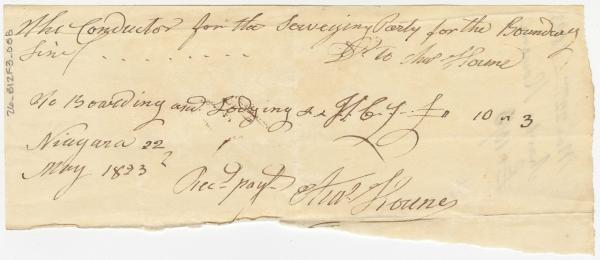 The Conductor for the Surveying Party for the Boundary
Line . . . . . . . . . Dr. to Thos. Koune
To Boarding and Lodging &c H. Cy £ " 10 " 3
Niagara 22
May 1823
Rec.d pay.t Thos. Koune
26-B12F3-008